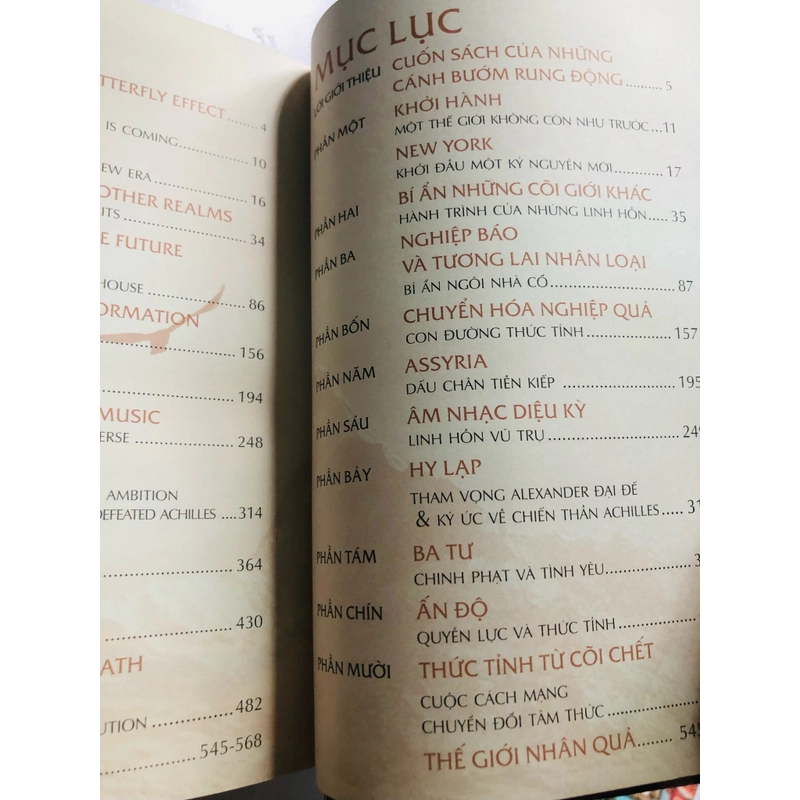 TTERFLY EFFECT ........ 4
IS COMING .................. 10
EW ERA ........................ 16
OTHER REALMS
ITS .............................. 34
E FUTURE
HOUSE ......................... 86
ORMATION
.................................. 156
.................................. 194
MUSIC
ERSE ............................ 248
AMBITION
DEFEATED ACHILLES .... 314
.................................. 364
.................................. 430
ATH
UTION ......................... 482
.................................. 545-568
MỤC LỤC
LỜI GIỚI THIỆU CUỐN SÁCH CỦA NHỮNG
CÁNH BƯỚM RUNG ĐỘNG .......... 5
PHẦN MỘT KHỞI HÀNH
MỘT THẾ GIỚI KHÔNG CÒN NHƯ TRƯỚC ... 11
NEW YORK
KHỞI ĐẦU MỘT KỶ NGUYÊN MỚI ............... 17
PHẦN HAI BÍ ẨN NHỮNG CÕI GIỚI KHÁC
HÀNH TRÌNH CỦA NHỮNG LINH HỒN ..... 35
PHẦN BA NGHIỆP BÁO
VÀ TƯƠNG LAI NHÂN LOẠI
BÍ ẨN NGÔI NHÀ CỔ ............................. 87
PHẦN BỐN CHUYỂN HÓA NGHIỆP QUẢ
CON ĐƯỜNG THỨC TỈNH ...................... 157
PHẦN NĂM ASSYRIA
DẤU CHÂN TIỀN KIẾP ............................ 195
PHẦN SÁU ÂM NHẠC DIỆU KỲ
LINH HỒN VŨ TRỤ ................................ 249
PHẦN BẢY HY LẠP
THAM VỌNG ALEXANDER ĐẠI ĐẾ
& KÝ ỨC VỀ CHIẾN THẦN ACHILLES ..... 31
PHẦN TÁM BA TƯ
CHINH PHẠT VÀ TÌNH YÊU .................... 3
PHẦN CHÍN ẤN ĐỘ
QUYỀN LỰC VÀ THỨC TỈNH ....................
PHẦN MƯỜI THỨC TỈNH TỪ CÕI CHẾT
CUỘC CÁCH MẠNG
CHUYỂN ĐỔI TÂM THỨC ........................
THẾ GIỚI NHÂN QUẢ ........ 545